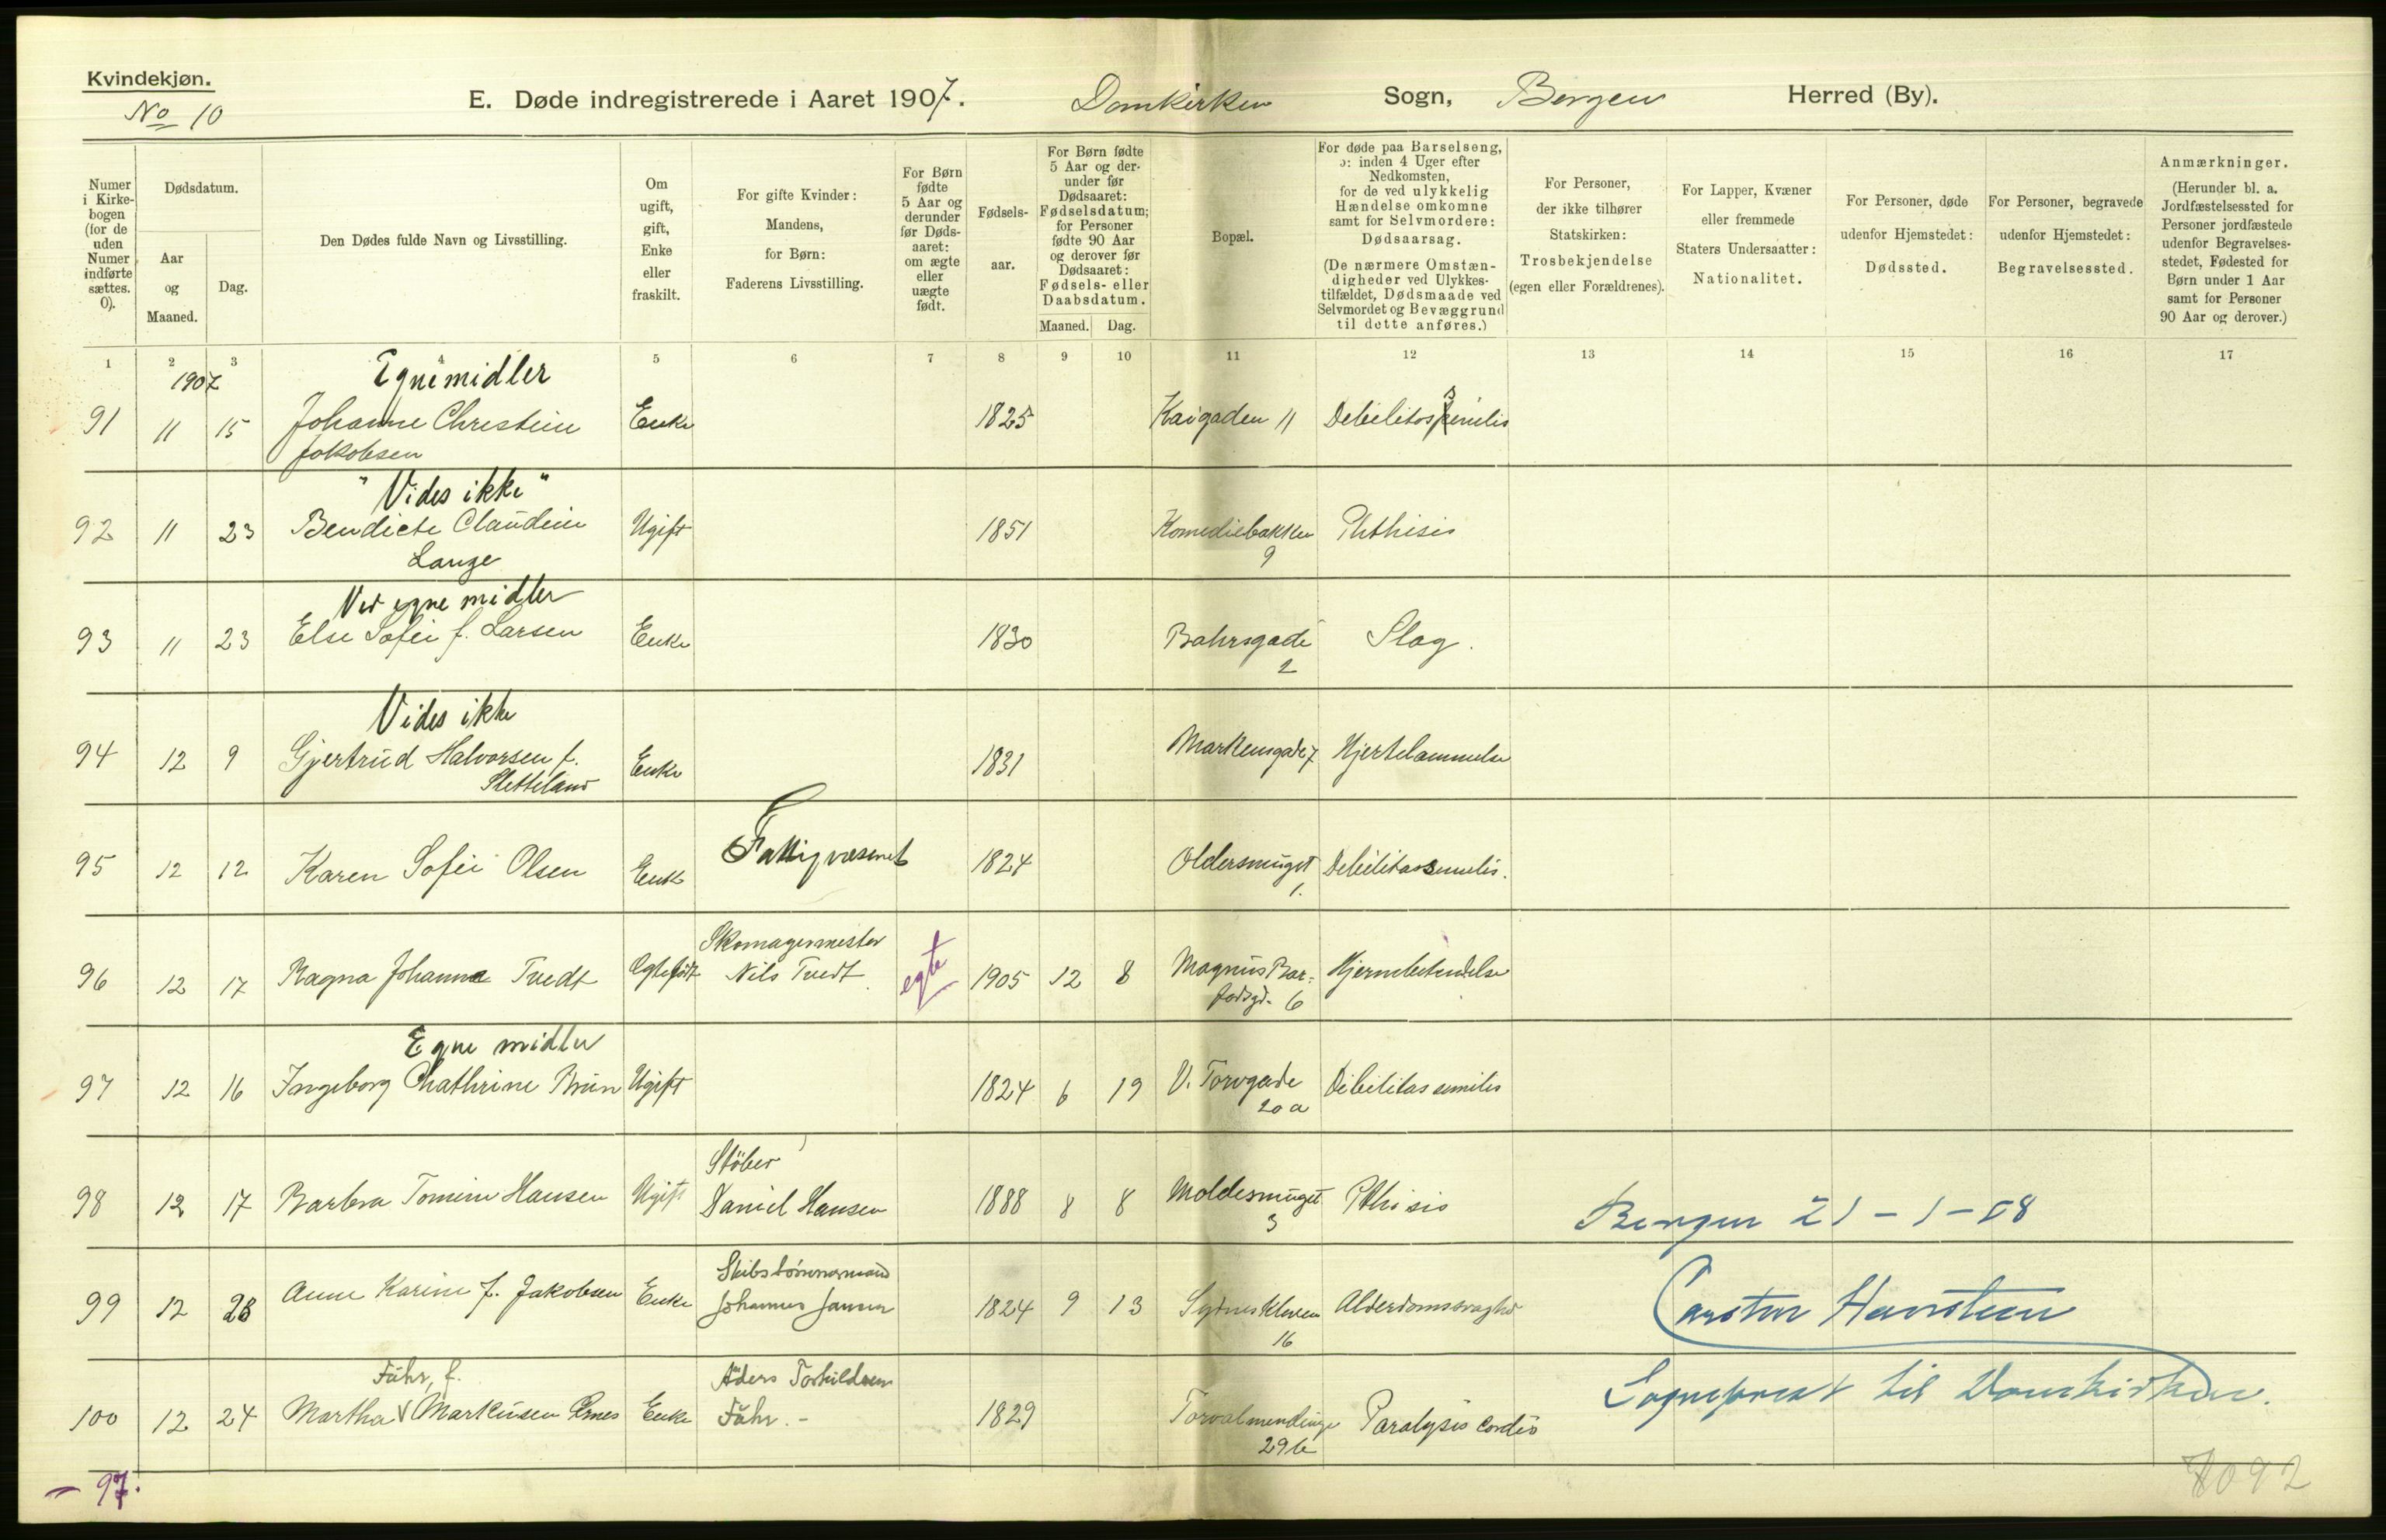 Kvindekjøn.
No 10
E. Døde indregistrerede i Aaret 1907. Domkirken Sogn, Bergen Herred (By).
Numer i Kirkebogen (for de uden Numer indførte sættes. 0).
Dødsdatum.
Aar og Maaned.
Dag.
Den Dødes fulde Navn og Livsstilling.
Om ugift, gift, Enke eller fraskilt.
For gifte Kvinder: Mandens, for Børn: Faderens Livsstilling.
For Børn fødte 5 Aar og derunder før Dødsaaret: om ægte eller uægte født.
Fødselsaar.
For Børn fødte 5 Aar og derunder før Dødsaaret: Fødselsdatum; for Personer fødte 90 Aar og derover før Dødsaaret: Fødsels- eller Daabsdatum.
Maaned. Dag.
Bopæl.
For døde paa Barselseng, ɔ: inden 4 Uger efter Nedkomsten, for de ved ulykkelig Hændelse omkomne samt for Selvmordere: Dødsaarsag. (De nærmere Omstændigheder ved Ulykkestilfældet, Dødsmaade ved Selvmordet og Bevæggrund til dette anføres.)
For Personer, der ikke tilhører Statskirken: Trosbekjendelse (egen eller Forældrenes).
For Lapper, Kvæner eller fremmede Staters Undersaatter: Nationalitet.
For Personer, døde udenfor Hjemstedet: Dødssted.
For Personer, begravede udenfor Hjemstedet: Begravelsessted.
Anmærkninger. (Herunder bl. a. Jordfæstelsessted for Personer jordfæstede udenfor Begravelsesstedet, Fødested for Børn under 1 Aar samt for Personer 90 Aar og derover.)
1 2 3 4 5 6 7 8 9 10 11 12 13 14 15 16 17
1907 Egne midler
91 11 15 Johanne Christine Enke 1825 Kaigaden 11 Debilitas senilis
Jakobsen
"Vides ikke"
92 11 23 Bendicte Claudine Ugift 1851 Komediebakken Phthisis
Lange 9
Ved egne midler
93 11 23 Else Sofie f. Larsen Enke 1830 Bahrsgade Slag.
2
Vides ikke
94 12 9 Gjertrud Halvorsen f. Enke 1831 Markensgade 7 Hjertelammelse
Sletteland
95 12 12 Karen Sofie Olsen Enke Fattigvæsenet 1824 Oldersmuget Debilitas senilis.
1.
Skomagermester
96 12 17 Ragna Johanna Tvedt Egtefødt Nils Tvedt egte 1905 12 8 Magnus Bar- Hjernebetendelse
fodsgd. 6
Egne midler
97 12 16 Ingeborg Chathrine Brun Ugift 1824 6 19 V. Torvgade Debilitas senilis
20 a
Støber
98 12 17 Barbra Tomine Hansen Ugift Daniel Hansen 1888 8 8 Moldesmuget Pthisis
3
Bergen 21-1-08
Skibstømmermand
99 12 28 Anne Karine f. Jakobsen Enke Johannes Jansen 1824 9 13 Sydneskleven Alderdomssvaghed
16
Carsten Hansteen
Fähr, f. Aders Torkildsen
100 12 24 Martha Markusen Enke Fähr. - 1829 Torvalmending Paralysis cordis
29 b
Sogneprest til Domkirken.
- 97.
8092